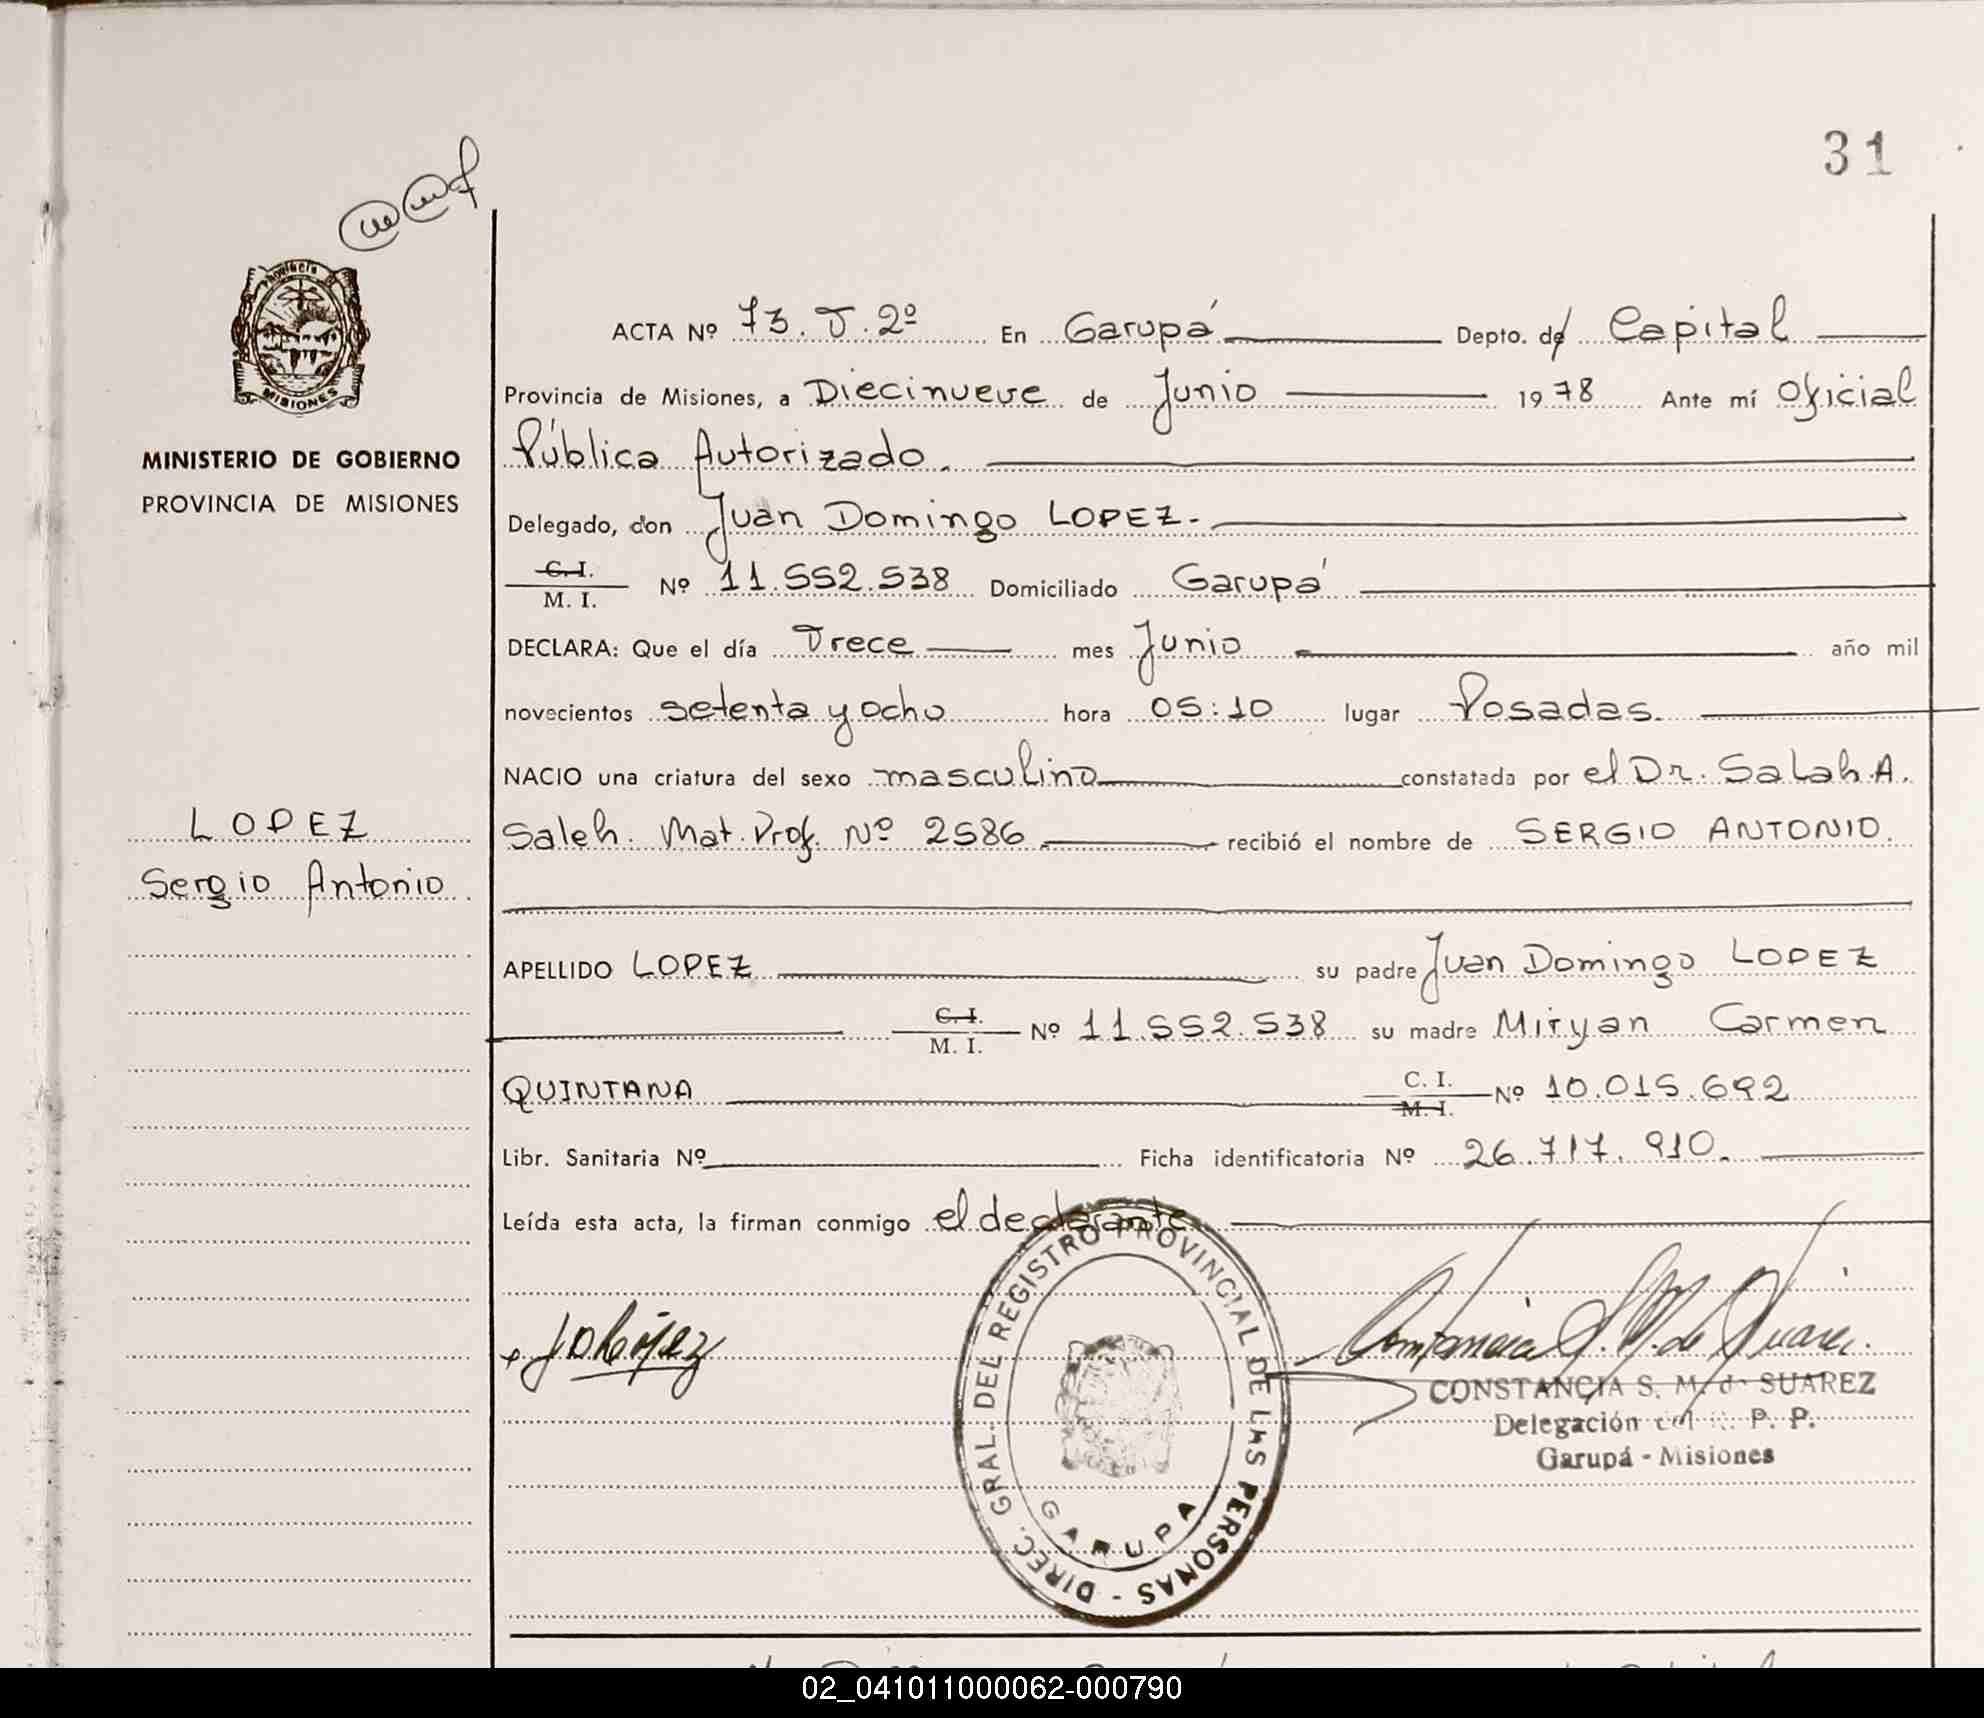 31
Provincia
MISIONES
MINISTERIO DE GOBIERNO
PROVINCIA DE MISIONES
LOPEZ
Sergio Antonio
ACTA Nº 73. T. 2º En Garupá Depto. de Capital
Provincia de Misiones, a Diecinueve de Junio 1978 Ante mí Oficial
Pública Autorizado.
Delegado, don Juan Domingo LOPEZ.-
C. I.
M. I. Nº 11.552.538 Domiciliado Garupá
DECLARA: Que el día Trece mes Junio año mil
novecientos setenta y ocho hora 05:10 lugar Posadas.
NACIO una criatura del sexo masculino constatada por el Dr. Salah A.
Saleh. Mat. Prof. Nº 2586 recibió el nombre de SERGIO ANTONIO.
APELLIDO LOPEZ su padre Juan Domingo LOPEZ
C. I.
M. I. Nº 11.552.538 su madre Miryan Carmen
QUINTANA C. I.
M. I. Nº 10.015.692
Libr. Sanitaria Nº Ficha identificatoria Nº 26.717.910.
Leída esta acta, la firman conmigo el declarante
DIREC. GRAL. DEL REGISTRO PROVINCIAL DE LAS PERSONAS -
GARUPA
J D López
Constancia S. M. de Suarez.
CONSTANCIA S. M. de SUAREZ
Delegación del R. P. P.
Garupá - Misiones
02_041011000062-000790